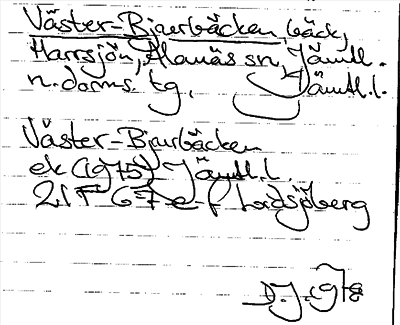 Väster-Bjurbäcken, bäck,
Harrsjön, Alanäs sn, Jämtl.
n. doms. tg. Jämtl. l.
Väster-Bjurbäcken
ek (1975) Jämtl. l.
21F 6-7 e-f Lidsjöberg
D.J. 1978